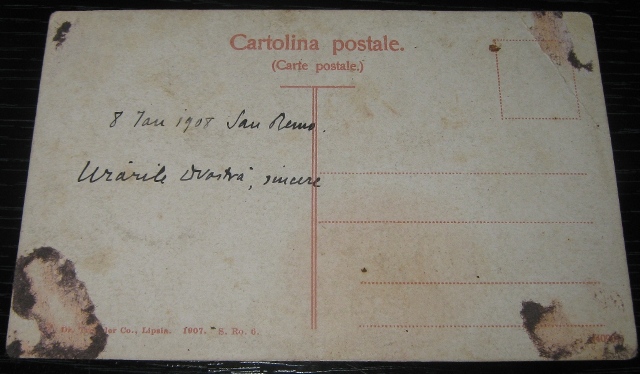 Cartolina postale.
(Carte postale.)
8 Ian 1908 San Remo.
Urările Dvostră, sincere
Co., Lipsia. 1907. S. Ro. 6.